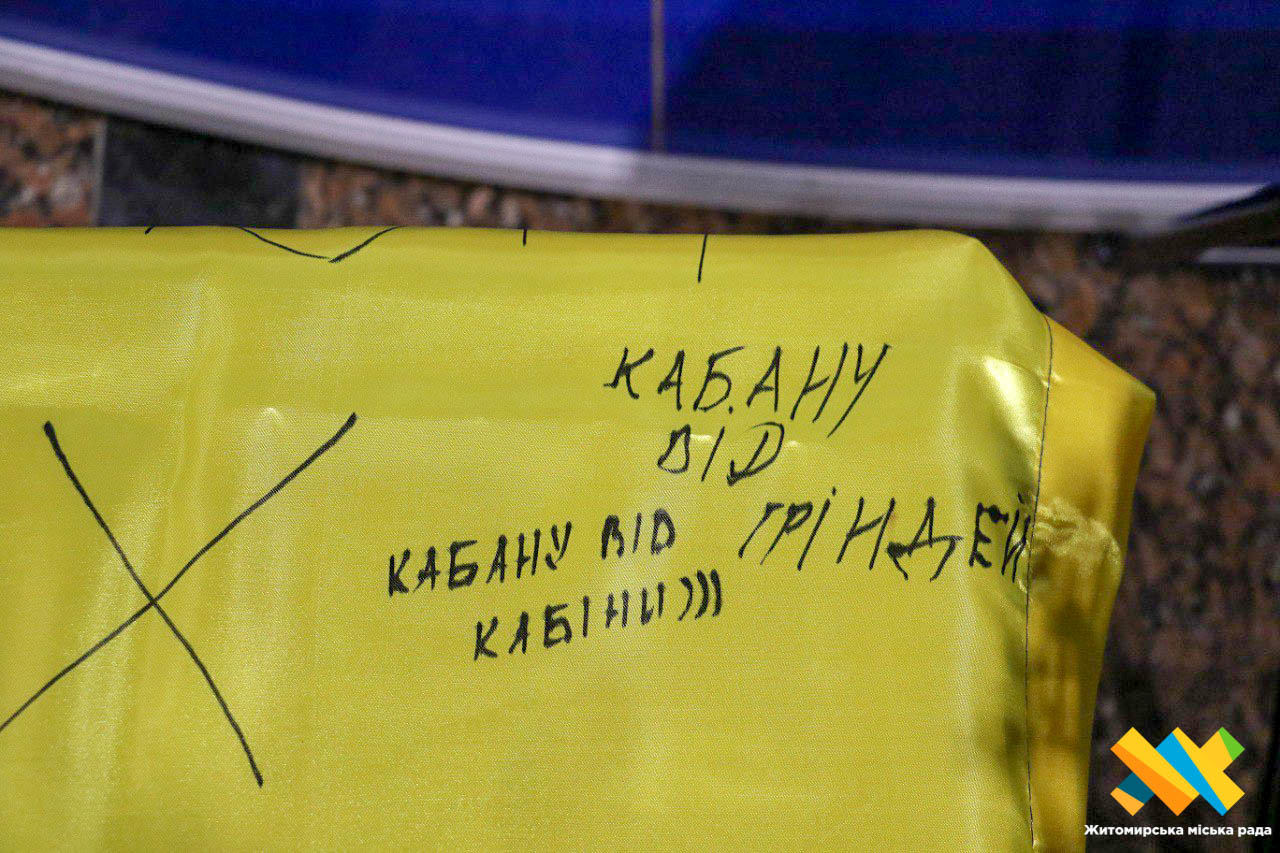 КАБАНУ
ВІД
ГРІНДЕЙ
КАБАНУ ВІД
КАБІНИ)))
Житомирська міська рада